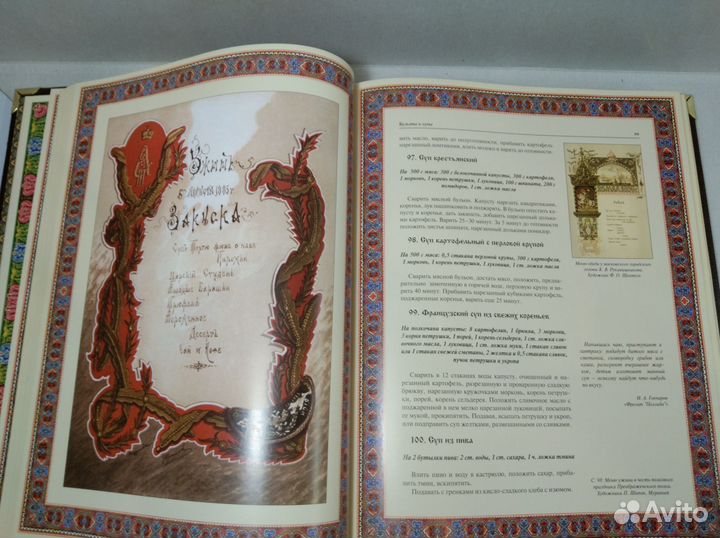 Ужинъ
Закуска
Десертъ
Чай и кофе
Бульоны и супы
нить мясо, варить до полуготовности, прибавить картофель,
нарезанный ломтиками, влить молоко и варить до готовности.
97. Суп крестьянский
На 500 г мяса: 300 г белокочанной капусты, 300 г картофеля,
1 морковь, 1 корень петрушки, 1 луковица, 100 г шпината, 200 г
помидоров, 1 ст. ложка масла
Сварить мясной бульон. Капусту нарезать квадратиками,
коренья, лук нашинковать и поджарить. В бульон опустить капусту
и коренья, дать закипеть, добавить нарезанный картофель.
Варить 25-30 минут. За 5 минут до готовности
положить шпинат, чистые листья, нарезанные дольками помидор.
98. Суп картофельный с перловой крупой
На 500 г мяса: 0,5 стакана перловой крупы, 500 г картофеля,
1 морковь, 1 корень петрушки, 1 луковица, 1 ст. ложка масла
Сварить мясной бульон, достать мясо, положить, предварительно
замоченную в горячей воде, перловую крупу и варить
40 минут. Прибавить нарезанный кубиками картофель,
поджаренные коренья, варить еще 25 минут.
99. Французский суп из свежих кореньев
На полкочана капусты: 8 картофелин, 1 брюква, 3 моркови,
3 корня петрушки, 1 порей, 1 корень сельдерея, 1 ст. ложка сливочного
масла, 1 луковица, 1 ст. ложка муки, 1 стакан сливок
или 1 стакан свежей сметаны, 2 желтка и 0,5 стакана сливок,
пучок петрушки и укропа
Сварить в 12 стаканах воды капусту, очищенный и нарезанный
картофель, разрезанную и проваренную сладкую
брюкву, нарезанную кружочками морковь, корень петрушки,
порей, корень сельдерея. Положить сливочное масло с
поджаренной в нем мелко нарезанной луковицей, посыпать
мукой, прокипятить. Подавая, всыпать петрушку и укроп,
или подправить суп желтками, размешанными со сливками.
100. Суп из пива
На 2 бутылки пива: 2 ст. воды, 1 ст. сахара, 1 ч. ложка тмина
Влить пиво и воду в кастрюлю, положить сахар, прибавить
тмин, вскипятить.
Подавать с гренками из кисло-сладкого хлеба с изюмом.
Меню обеда у московского городского
головы К. В. Рукавишникова.
Художник Ф. О. Шехтель
Напившись чаю, приступают к
завтраку: подадут битого мяса с
сметаной, сковородку грибов или
каши, разогреют вчерашнее жаркое,
детям изготовят манный
суп – всякому найдут что-нибудь
по вкусу.
И. А. Гончаров
«Фрегат "Паллада"»
С. 98: Меню ужина в честь полкового
праздника Преображенского полка.
Avito